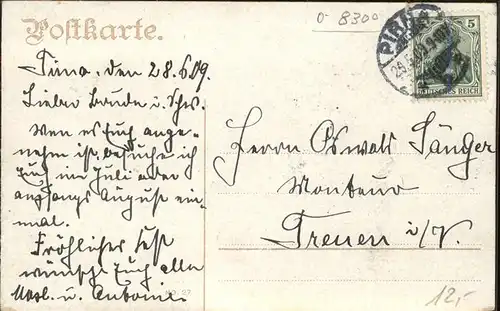 Postkarte.
0- 8300
PIRNA
5
DEUTSCHES REICH
Pirna, den 28.6.09.
Lieber Bruder u. Schw.
Wenn es Euch ange-
nehm ist, besuche ich
Euch im Juli oder
anfangs August ein-
mal.
Fröhliches Fest
wünscht Euch allen
u. Antonie.
Herrn Oswald Sänger
Monteur
Treuen i/V.
12,-